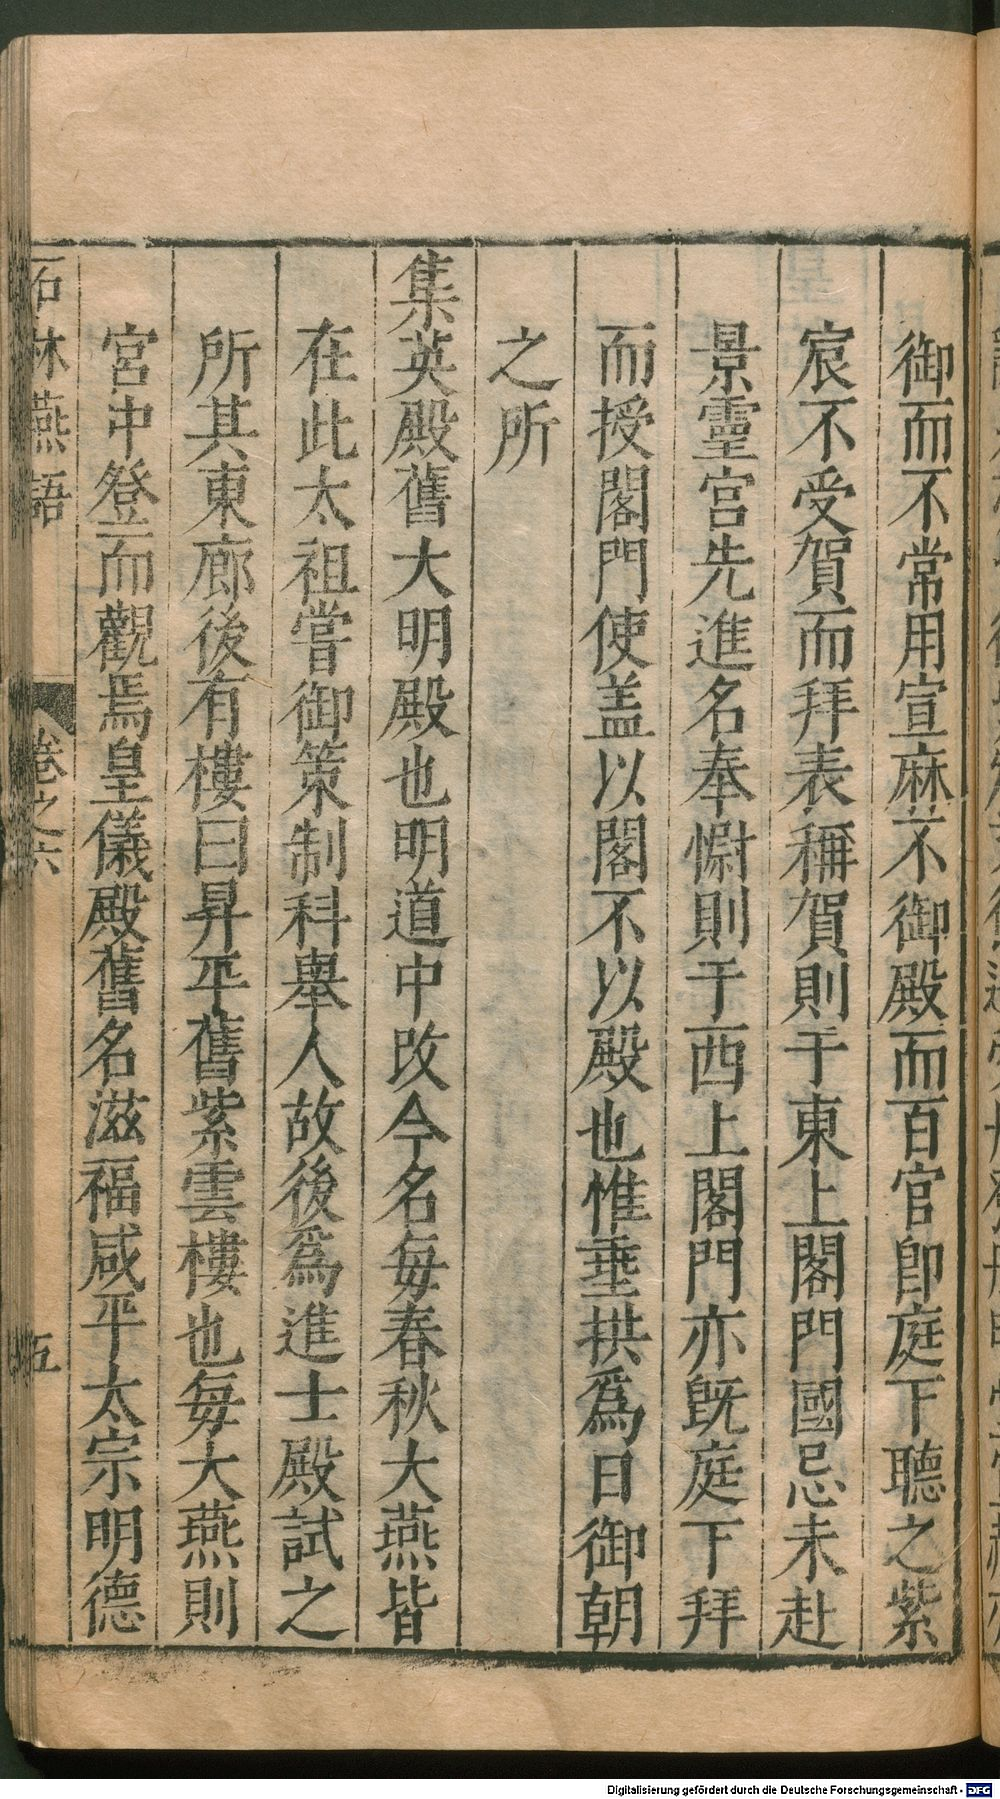 御而不常用宣麻不御殿而百官卽庭下聽之紫
宸不受賀而拜表稱賀則于東上閤門國忌未赴
景靈宮先進名奉慰則于西上閤門亦旣庭下拜
而授閤門使盖以閤不以殿也惟垂拱爲日御朝
之所
集英殿舊大明殿也明道中改今名每春秋大燕皆
在此太祖嘗御策制科舉人故後爲進士殿試之
所其東廊後有樓曰昇平舊紫雲樓也每大燕則
宮中登而觀焉皇儀殿舊名滋福咸平太宗明德
石林燕語 卷之六 五
Digitalisierung gefördert durch die Deutsche Forschungsgemeinschaft - DFG